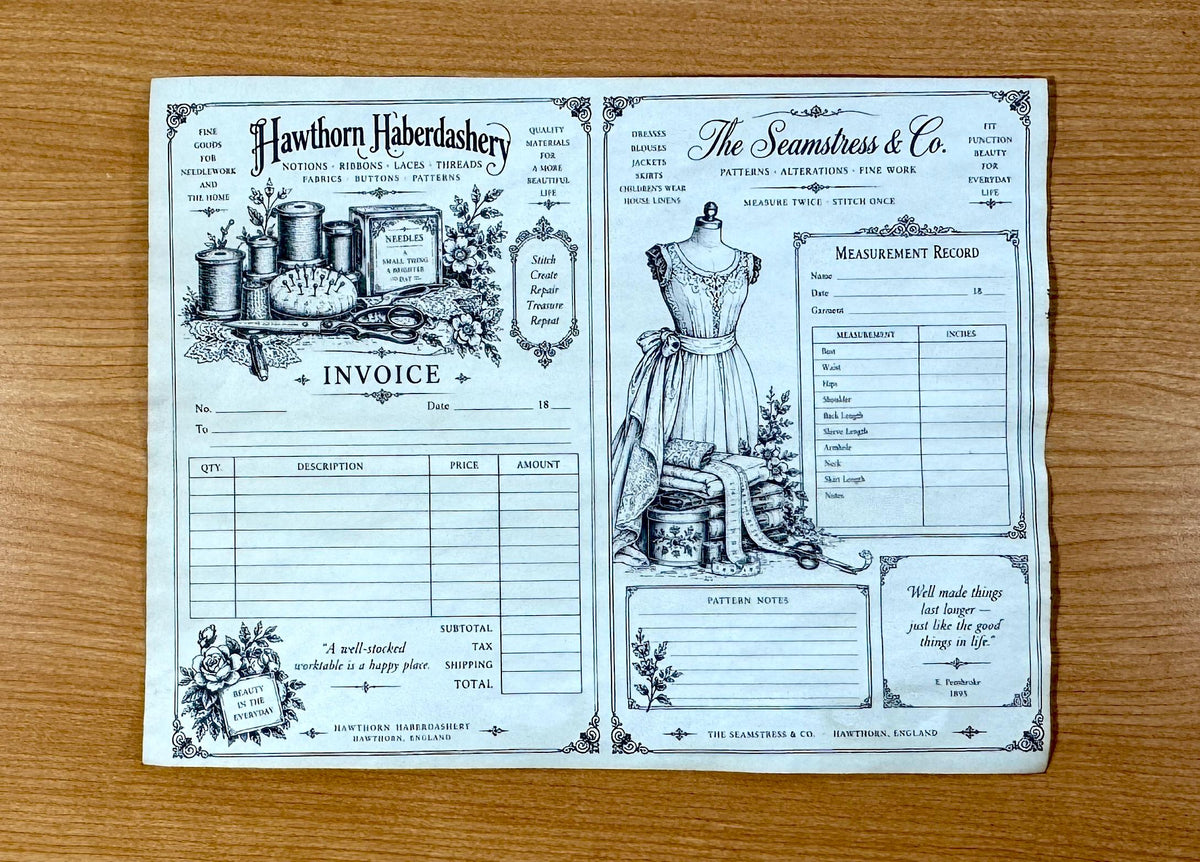 FINE
GOODS
FOR
NEEDLEWORK
AND
THE HOME
Hawthorn Haberdashery
NOTIONS · RIBBONS · LACES · THREADS
FABRICS · BUTTONS · PATTERNS
QUALITY
MATERIALS
FOR
A MORE
BEAUTIFUL
LIFE
NEEDLES
A
SMALL THING
A BRIGHTER
DAY
Stitch
Create
Repair
Treasure
Repeat
INVOICE
No. Date 18
To
QTY. DESCRIPTION PRICE AMOUNT
SUBTOTAL
TAX
SHIPPING
TOTAL
"A well-stocked
worktable is a happy place.
BEAUTY
IN THE
EVERYDAY
HAWTHORN HABERDASHERY
HAWTHORN, ENGLAND
DRESSES
BLOUSES
JACKETS
SKIRTS
CHILDREN'S WEAR
HOUSE LINENS
The Seamstress & Co.
PATTERNS · ALTERATIONS · FINE WORK
MEASURE TWICE · STITCH ONCE
FIT
FUNCTION
BEAUTY
FOR
EVERYDAY
LIFE
MEASUREMENT RECORD
Name
Date 18
Garment
MEASUREMENT INCHES
Bust
Waist
Hips
Shoulder
Back Length
Sleeve Length
Armhole
Neck
Skirt Length
Notes
PATTERN NOTES
Well made things
last longer —
just like the good
things in life."
E. Pembroke
1893
THE SEAMSTRESS & CO. · HAWTHORN, ENGLAND